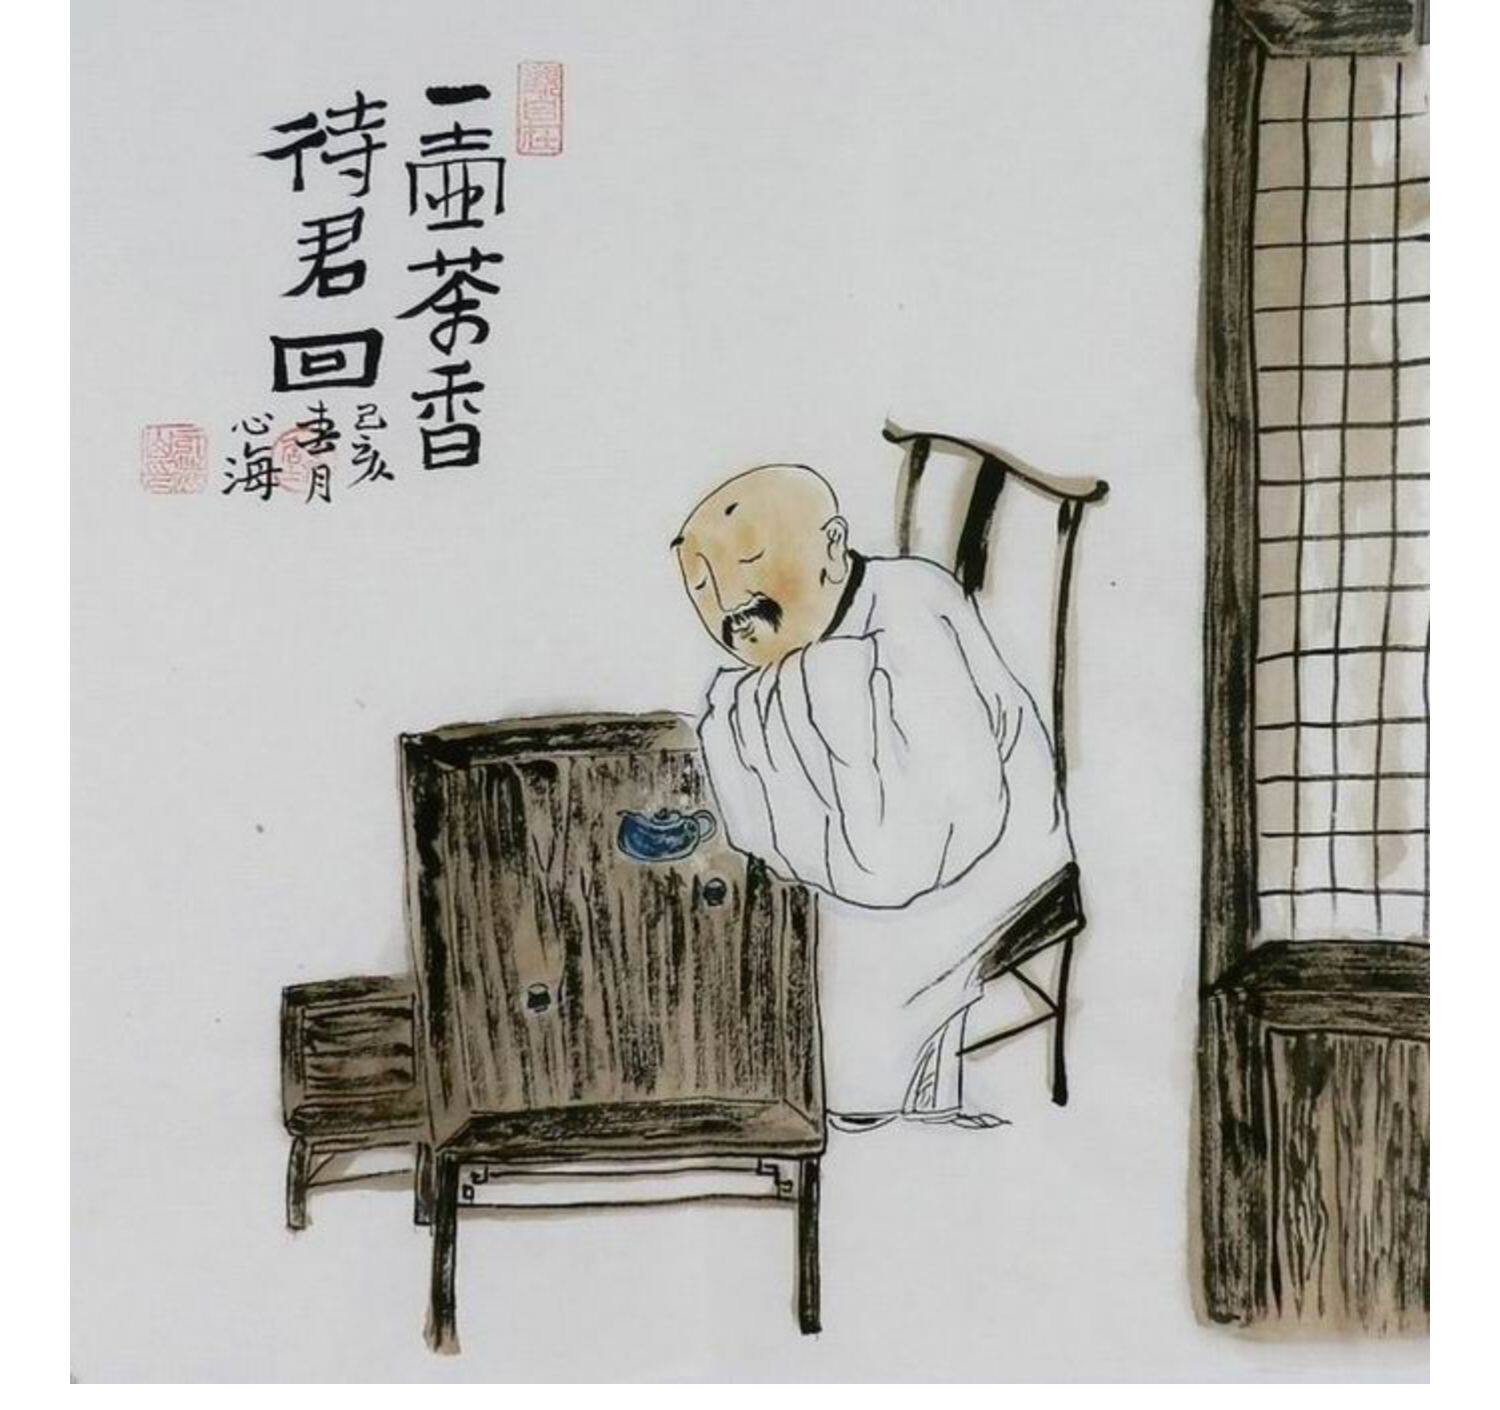 一壶茶香
待君回
己亥
春月
心海